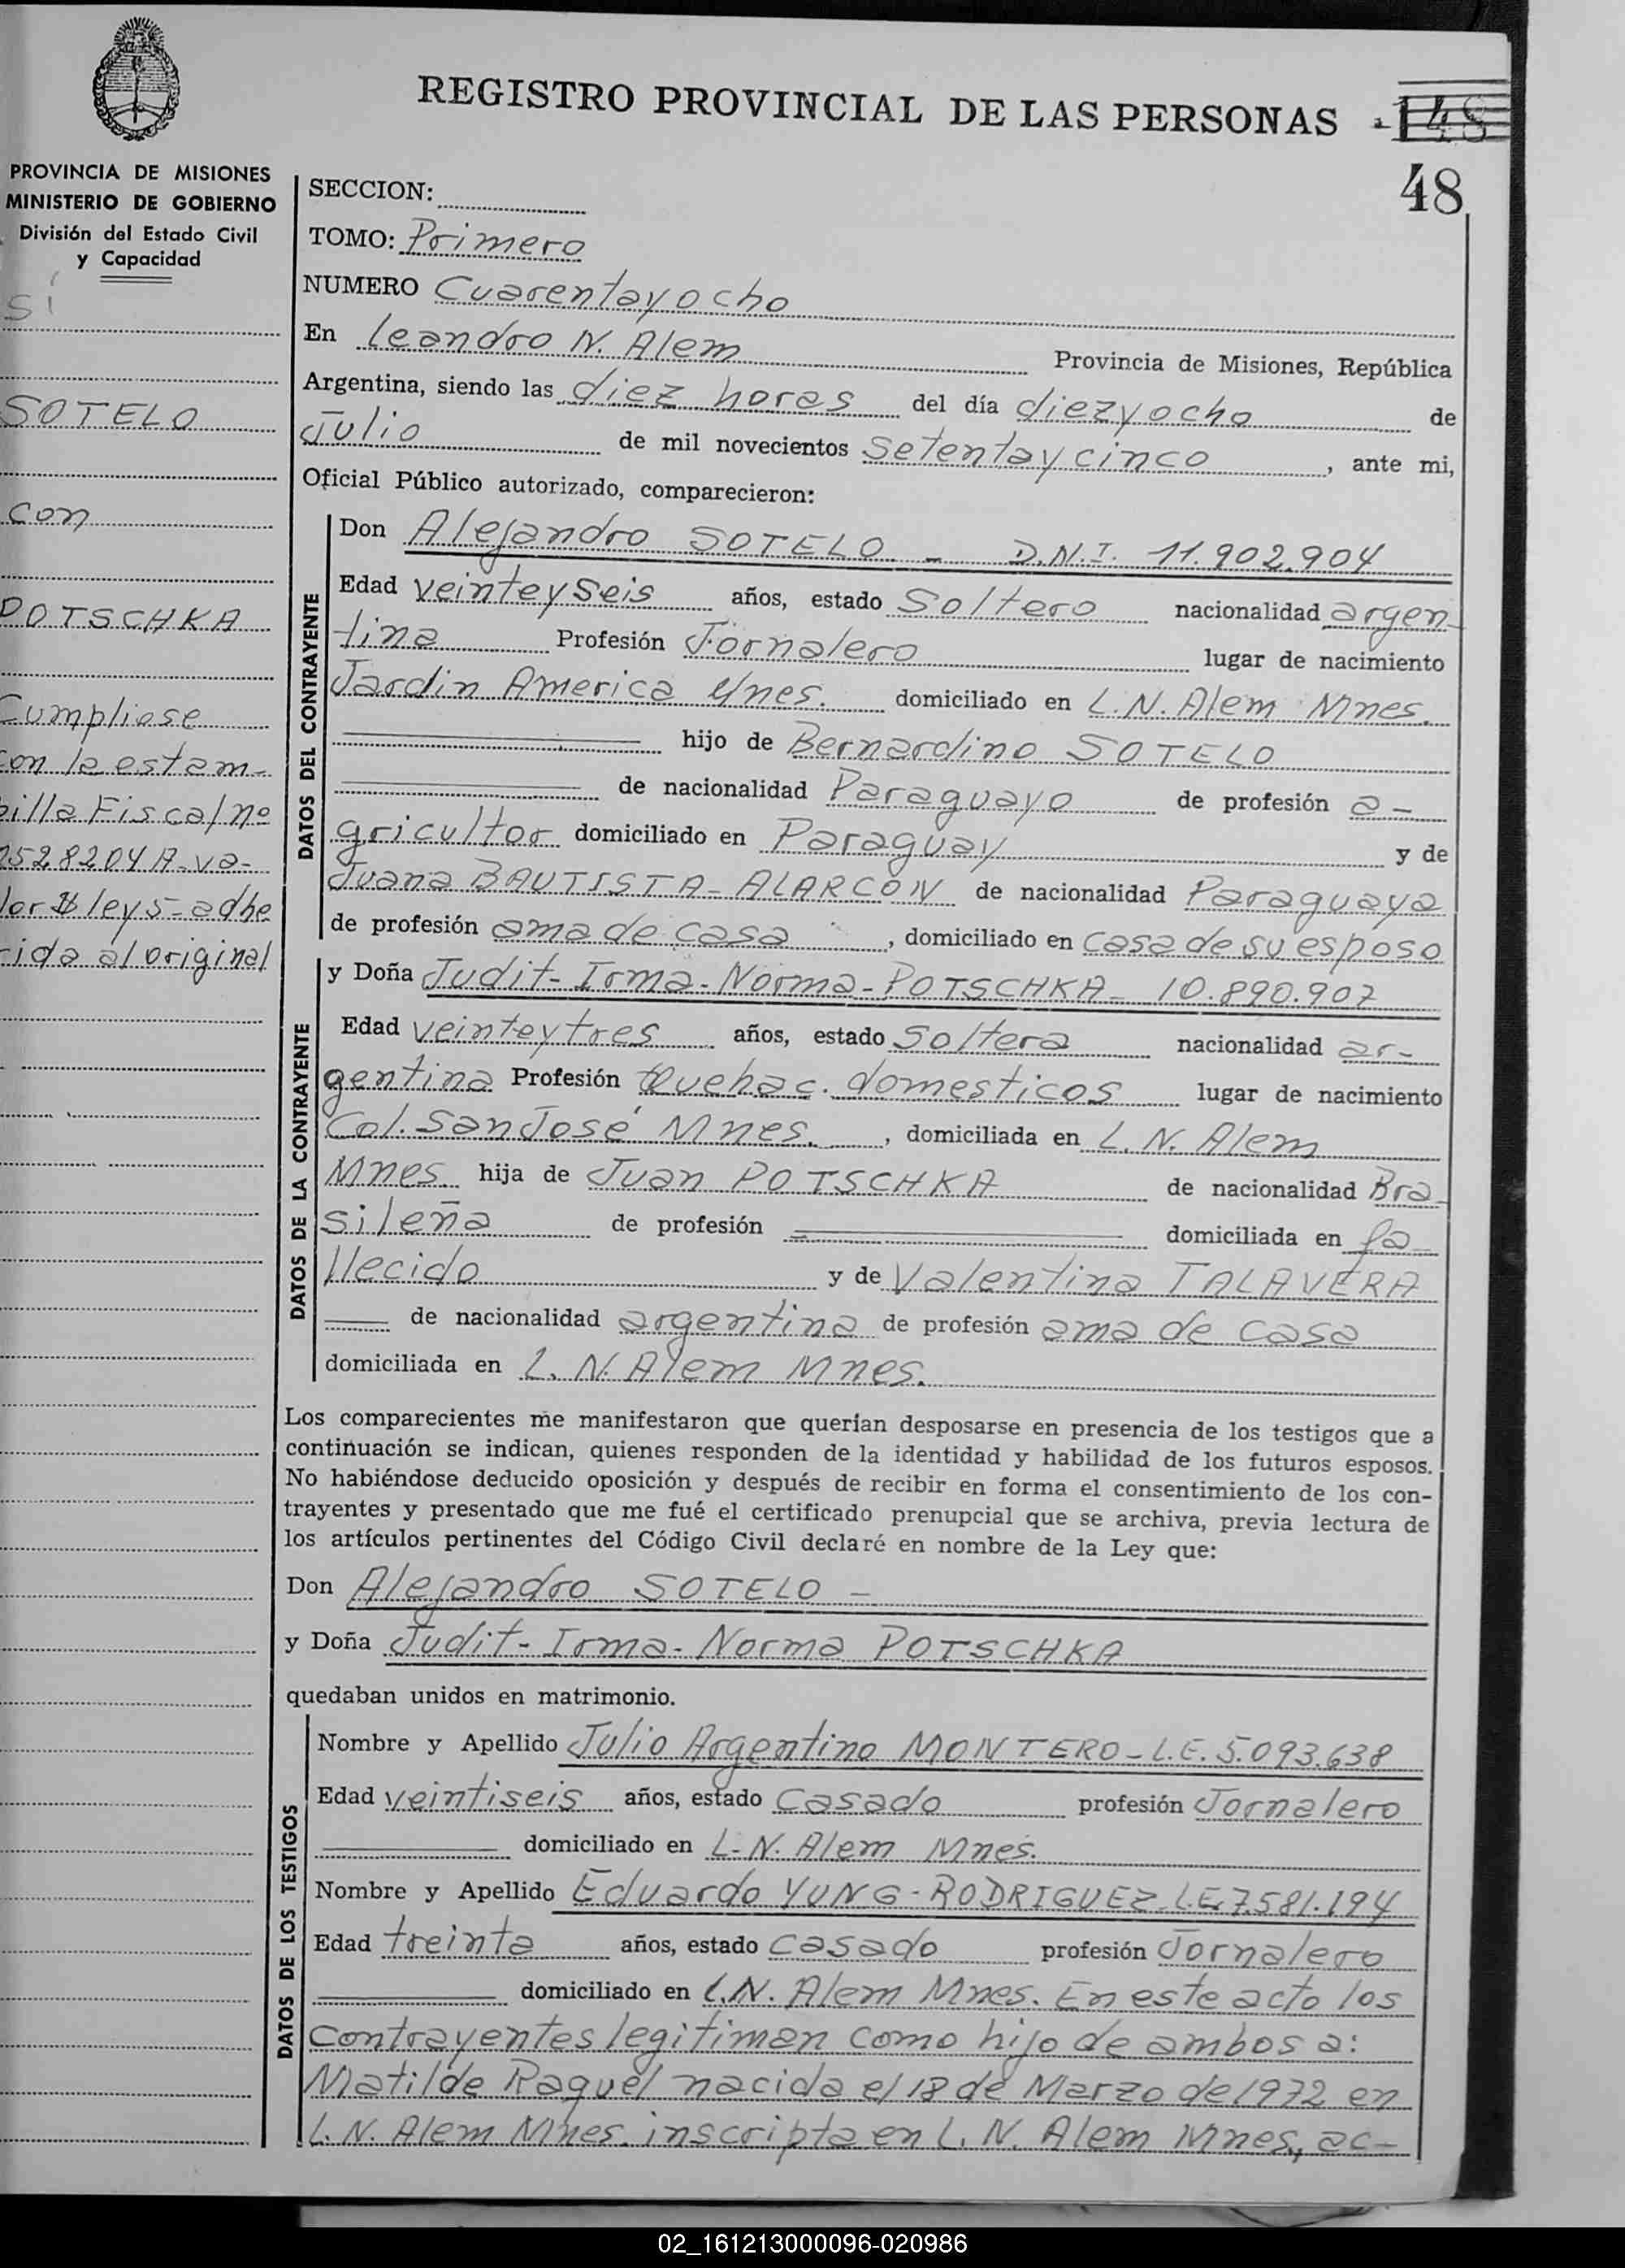 REGISTRO PROVINCIAL DE LAS PERSONAS
148
48
PROVINCIA DE MISIONES
MINISTERIO DE GOBIERNO
División del Estado Civil
y Capacidad
SOTELO
con
POTSCHKA
Cumpliose
con la estam-
pilla Fiscal nº
528204 A-va-
lor $ ley 5-adhe
rida al original
SECCION:
TOMO: Primero
NUMERO Cuarentayocho
En Leandro N. Alem Provincia de Misiones, República
Argentina, siendo las diez horas del día diezyocho de
Julio de mil novecientos setentaycinco, ante mi,
Oficial Público autorizado, comparecieron:
DATOS DEL CONTRAYENTE
Don Alejandro SOTELO - D.N.I. 11.902.904
Edad veinteyseis años, estado Soltero nacionalidad argen-
tina Profesión Jornalero lugar de nacimiento
Jardin America Mnes. domiciliado en L.N. Alem Mnes.
hijo de Bernardino SOTELO
de nacionalidad Paraguayo de profesión a-
gricultor domiciliado en Paraguay y de
Juana BAUTISTA-ALARCON de nacionalidad Paraguaya
de profesión ama de casa, domiciliado en casa de su esposo
DATOS DE LA CONTRAYENTE
y Doña Judit-Irma-Norma-POTSCHKA- 10.890.907
Edad veinteytres años, estado Soltera nacionalidad ar-
gentina Profesión Quehac. domesticos lugar de nacimiento
Col. San José Mnes., domiciliada en L. N. Alem
Mnes. hija de Juan POTSCHKA de nacionalidad Bra-
sileña de profesión domiciliada en fa-
llecido y de Valentina TALAVERA
de nacionalidad argentina de profesión ama de casa
domiciliada en L. N. Alem Mnes.
Los comparecientes me manifestaron que querían desposarse en presencia de los testigos que a
continuación se indican, quienes responden de la identidad y habilidad de los futuros esposos.
No habiéndose deducido oposición y después de recibir en forma el consentimiento de los con-
trayentes y presentado que me fué el certificado prenupcial que se archiva, previa lectura de
los artículos pertinentes del Código Civil declaré en nombre de la Ley que:
Don Alejandro SOTELO -
y Doña Judit-Irma-Norma POTSCHKA
quedaban unidos en matrimonio.
DATOS DE LOS TESTIGOS
Nombre y Apellido Julio Argentino MONTERO-L.E. 5.093.638
Edad veintiseis años, estado Casado profesión Jornalero
domiciliado en L.N. Alem Mnes.
Nombre y Apellido Eduardo YUNG-RODRIGUEZ-L.E. 7.581.194
Edad treinta años, estado casado profesión Jornalero
domiciliado en L.N. Alem Mnes. En este acto los
contrayentes legitiman como hijo de ambos a:
Matilde Raquel nacida el 18 de Marzo de 1972 en
L. N. Alem Mnes. inscripta en L. N. Alem Mnes, ac-
02_161213000096-020986